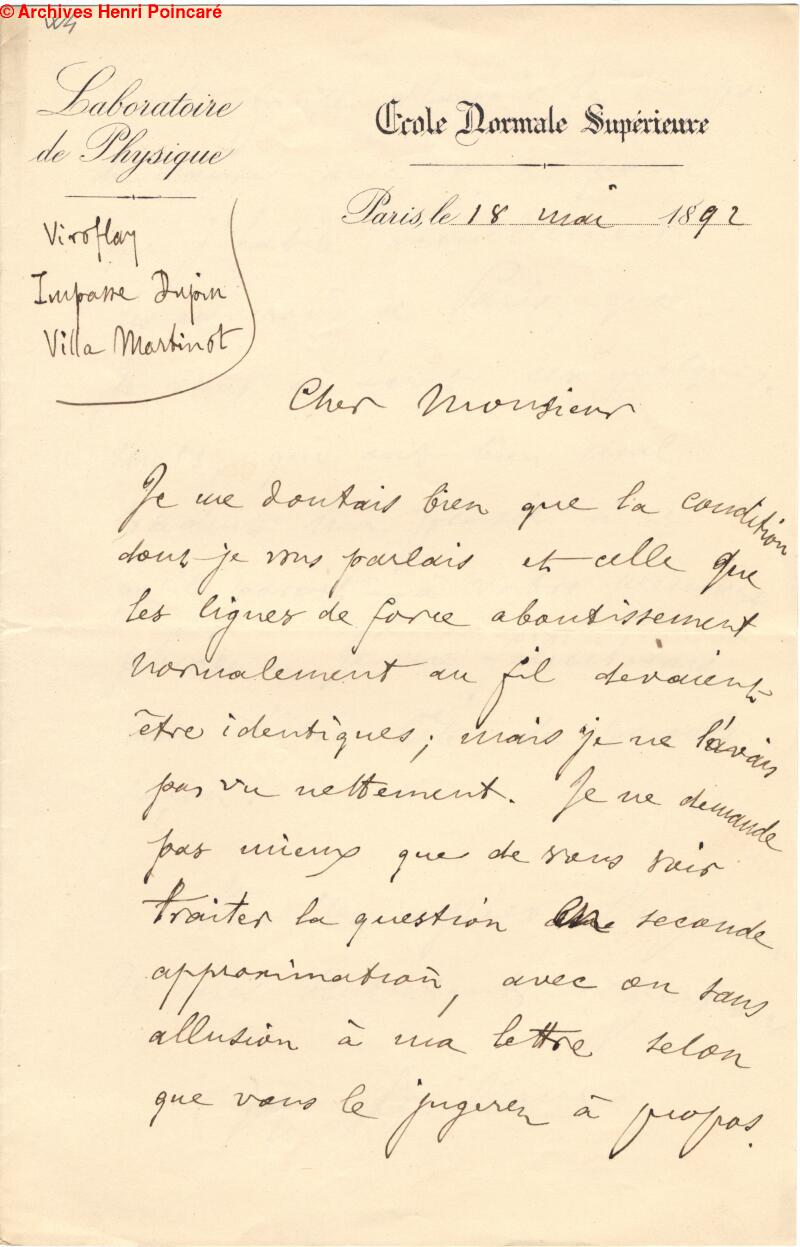 © Archives Henri Poincaré
Laboratoire
de Physique
Ecole Normale Supérieure
Paris, le 18 mai 1892
Viroflay
Impasse Dupin
Villa Martinot
Cher Monsieur
Je me doutais bien que la condition
dont je vous parlais et celle que
les lignes de force aboutissement
normalement au fil devaient
être identiques; mais je ne l'avais
pas vu nettement. Je ne demande
pas mieux que de vous voir
traiter la question seconde
approximation, avec ou sans
allusion à ma lettre selon
que vous le jugerez à propos.